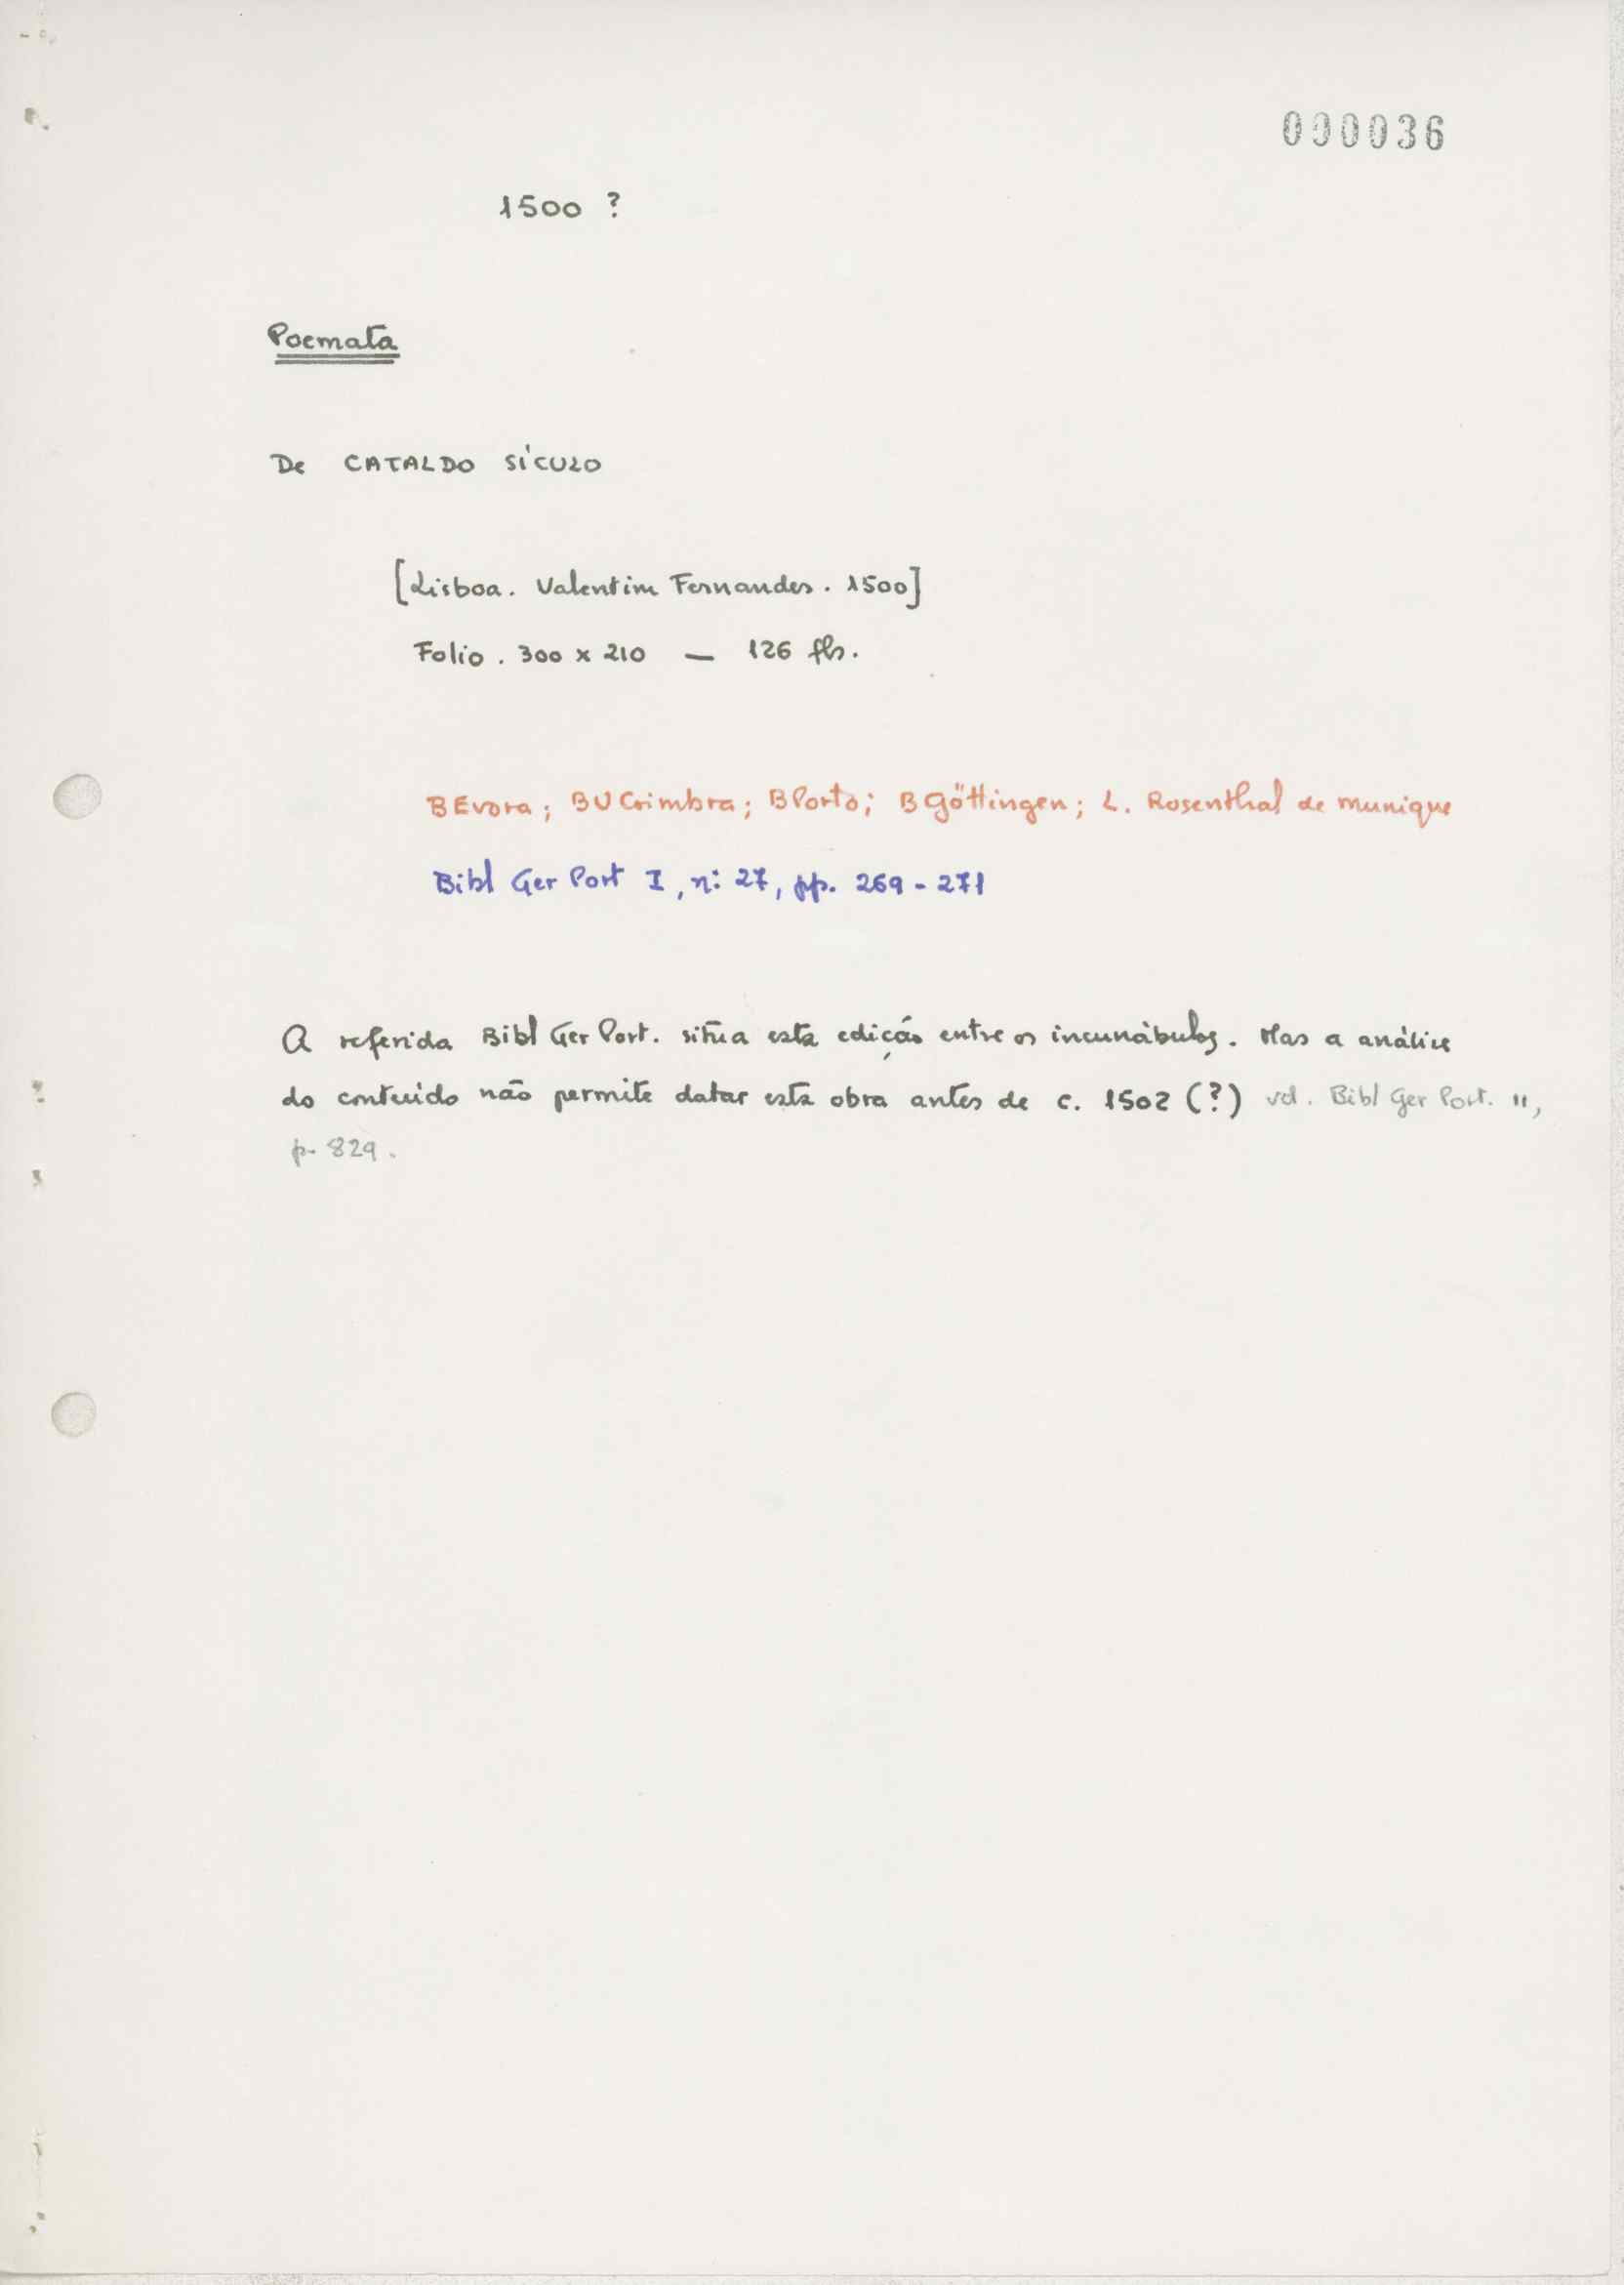 000036
1500 ?
Poemata
De CATALDO SÍCULO
[Lisboa. Valentim Fernandes. 1500]
Folio. 300 x 210 — 126 fls.
BEvora; BUCoimbra; BPorto; BGöttingen; L. Rosenthal de Munique
Bibl Ger Port I, n: 27, pp. 269-271
A referida Bibl Ger Port. situa esta edição entre os incunábulos. Mas a análise
do conteúdo não permite datar esta obra antes de c. 1502 (?) vd. Bibl Ger Port. II,
p. 829.